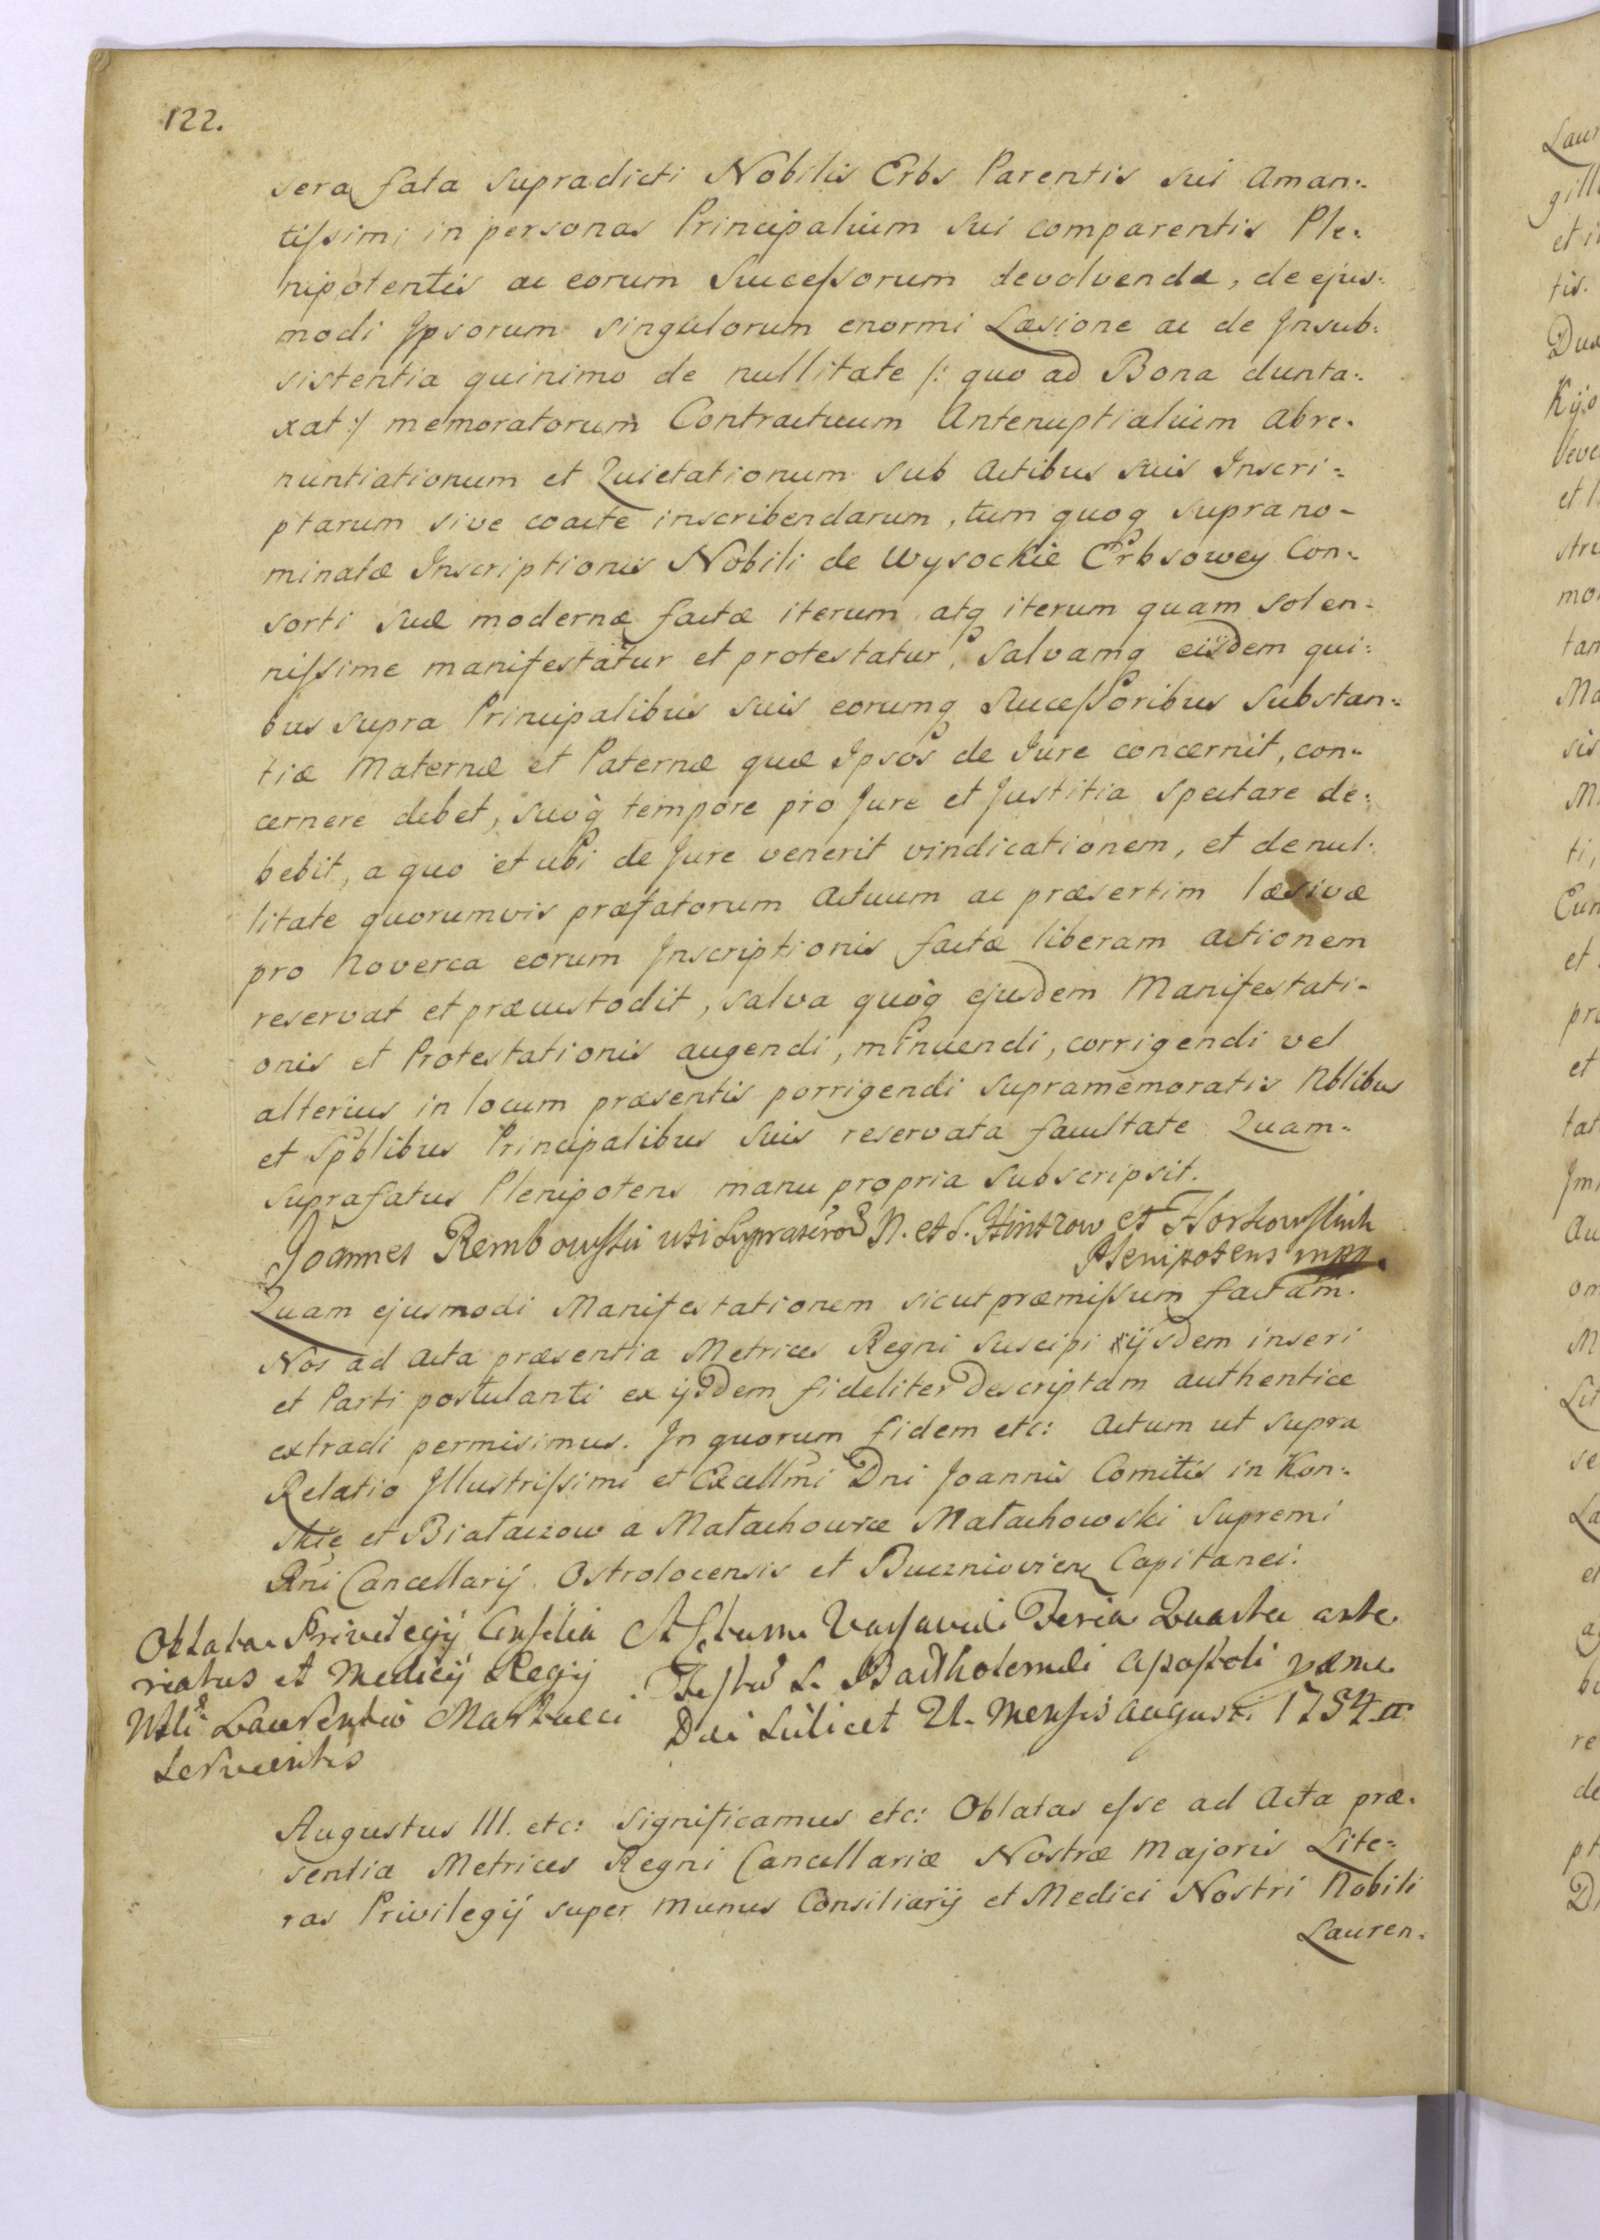 122.
sera fata supradicti Nobilis Erbs Parentis sui aman:
tissimi in personas Principalium sui comparentis Ple:
nipotentis ac eorum Successorum devolvenda, de ejus:
modi Ipsorum singulorum enormi Læsione ac de Insub:
sistentia quinimo de nullitate /: quo ad Bona dunta:
xat :/ memoratorum Contractuum Antenuptialium Abre:
nuntiationum et Quietationum sub Actibus suis Inscri:
ptarum sive coacte inscribendarum, tum quoq suprano-
minatæ Inscriptionis Nobili de Wysockie Erbsowey Con:
sorti suæ modernæ factæ iterum atq iterum quam solen:
nissime manifestatur et protestatur, Salvamq eisdem qui:
bus supra Principalibus suis eorumq Successoribus Substan:
tiæ Maternæ et Paternæ quæ Ipsos de Jure concernit, con-
cernere debet, suoq tempore pro Jure et Justitia spectare de:
bebit, a quo et ubi de Jure venerit vindicationem, et de nul:
litate quorumvis præfatorum Actuum ac præsertim læsivæ
pro Noverca eorum Inscriptionis factæ liberam actionem
reservat et præcustodit, salva quoq ejusdem Manifestati-
onis et Protestationis augendi, minuendi, corrigendi vel
alterius in locum præsentis porrigendi supramemoratis Nblibus
et Spblibus Principalibus suis reservata facultate Quam-
suprafatus Plenipotens manu propria subscripsit.
Joannes Rembowski uti N. et S. Hintzow et
Plenipotens mpp.
Quam ejusmodi Manifestationem sicut præmissum factam.
Nos ad Acta præsentia Metrices Regni suscipi ijsdem inseri
et Parti postulanti ex ijsdem fideliter Descriptam authentice
extradi permisimus. In quorum fidem etc: Actum ut supra
Relatio Illustrissimi et Excellmi Dni Joannis Comitis in Kon:
skie et Białaczow a Małachowice Małachowski Supremi
Rni Cancellarij Ostrolocensis et Capitanei.
Oblata Privilegij Consilia
riatus et Medicij Regij
Nbli Laurentio Martucci
servientis
Actum Varsaviæ Feria Quarta ante
Festum S. Bartholomæi Apostoli
Dni scilicet 21. Mensis Augusti 1754
Augustus III. etc: Significamus etc: Oblatas esse ad Acta præ:
sentia Metrices Regni Cancellariæ Nostræ Majoris Lite:
ras Privilegij super munus Consiliarij et Medici Nostri Nobili
Lauren: